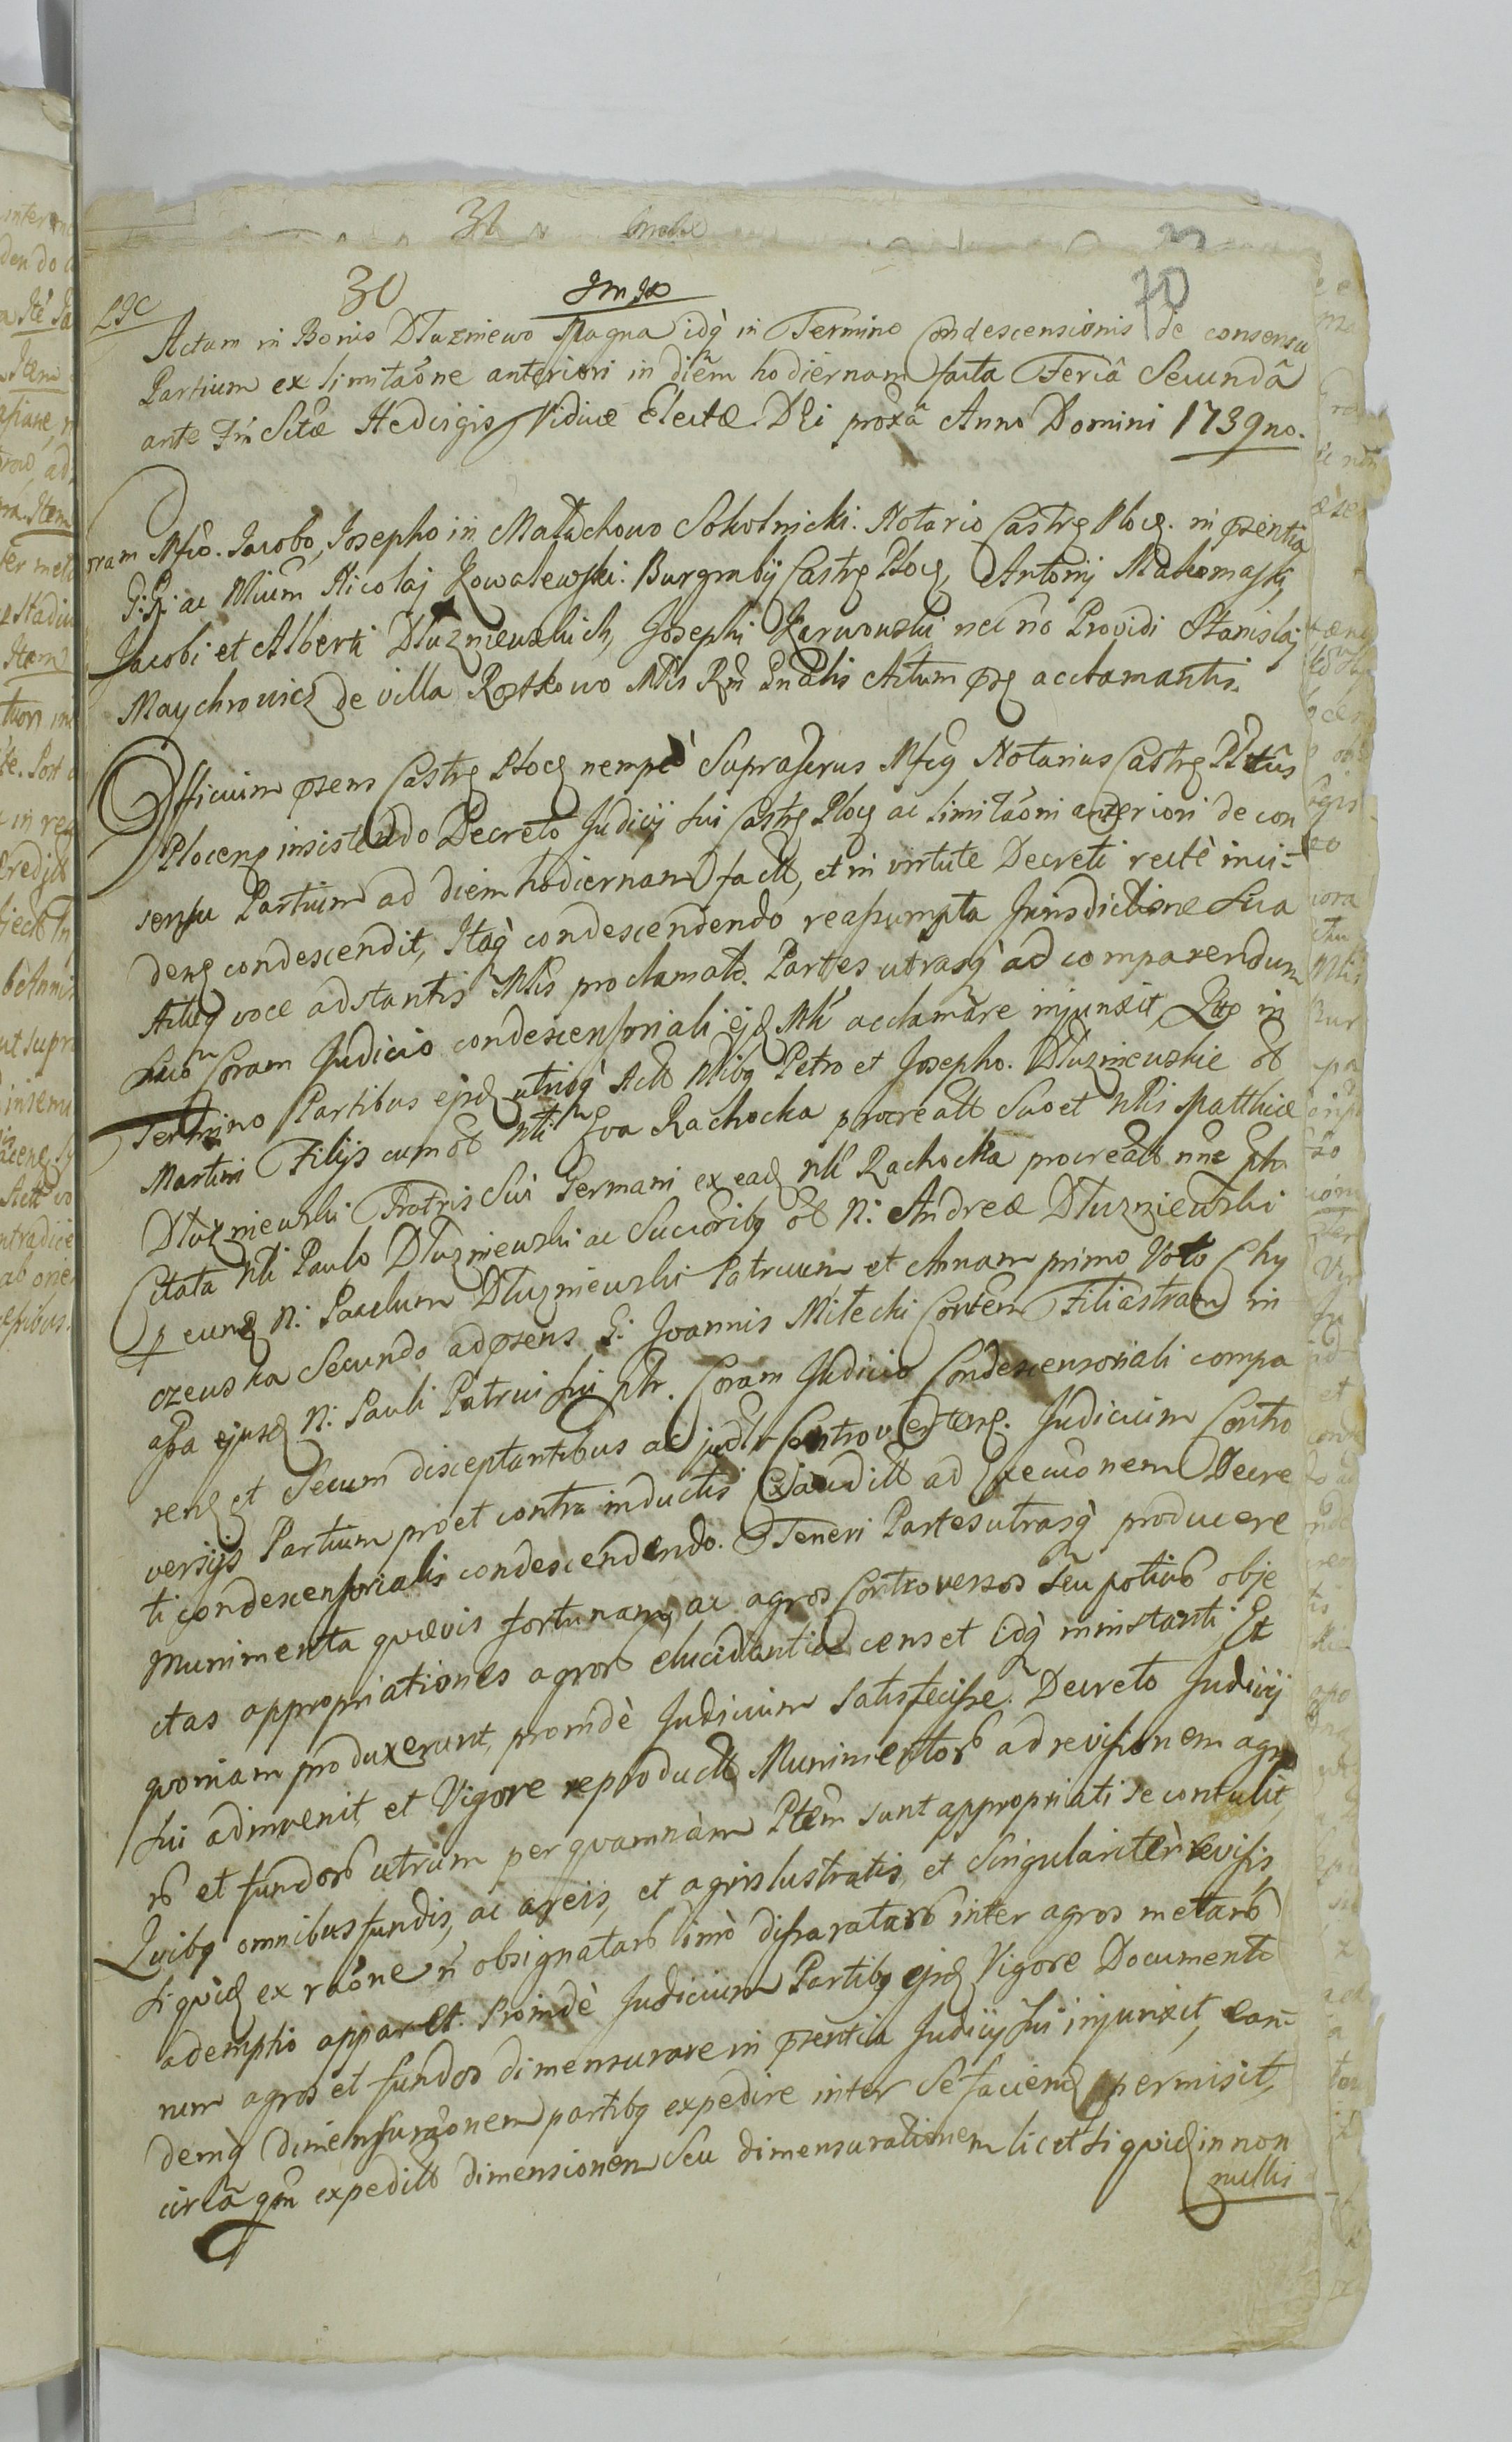 30
70
Actum in Bonis Dłuzniewo Magna idq̀ in Termino Condescensionis de consensu
Partium ex limitaõne anteriori in diem hodiernam facta Feriâ Secundâ
ante Fm Sctæ Hedvigis Viduæ Electæ DEi proxâ Anno Domini 1739no.
oram Mfco. Jacobo, Josepho in Małachowo Sokolnicki. Notario Castrg Plocg. in pzentia
G:G: ac Nlium Nicolaj Kowalewski. Burgrabij Castrg Plocg, Antonij Makomaski,
Jacobi et Alberti Dłuzniewskich, Josephi Karwowski nec no Providi Stanislaj
Maychrowicz de villa Rostkowo Mlis Rm Gnalis Actum pzg acclamantis.
Officium pzens Castrg Plocg nempè Suprascrus Mfcg Notarius Castrg
Plocens insistendo Decreto Judicij sui Castrg Plocg ac limitaõni anteriori de con
sensu Partium ad diem hodiernam fact, et in virtute Decreti rectè inci-
deng condescendit, Itaq̀ condescendendo reassumpta Jurisdictione Sua
Actug voce adstantis Mlis proclamato. Partes utrasq̀ ad comparendum
suo Coram Judicio condescensoriali ejg Mli acclamare injunxit, in
Termino Partibus ejsd utriusq̀ Act Nlibg Petro et Josepho. Dłuzniewskie ol
Martini Filijs cum ol Nli Eva Rachocka procreatt Suo et Nlis Matthiæ
Dłuzniewski Fratris Sui Germani ex ead Nli Rachocka procreatt nne
Citata Nli Paulo Dłuzniewski ac Succoribg ol N: Andreæ Dłuzniewski
p eund N: Paulum Dłuzniewski Patruum et Annam primo Voto Chy
czewska Secundo ad pzens G: Joannis Miłecki Contem Filiastram in
assa ejusd N: Pauli Patrui sui ptr. Coram Judicio Condescensoriali compa
reng et Secum disceptantibus ac judtr Controverteng. Judicium Contro
versijs Partium pro et contra inductis Exaudit ad Execuõnem Decre
ti condescensorialis condescendendo. Teneri Partes utrasq̀ producere
Munimenta quævis fortunam, ac agros Controversos Seu potius obje
ctas appropriationes agror elucidantia censet idq̀ in instanti. Et
quoniam produxerunt, proindè Judicium Satisfecisse Decreto Judicij
sui adinvenit, et Vigore reproductt Munimentor ad revisionem agro
r et fundor utrum per quamnam Ptem sunt appropriati se contulit,
Quibg omnibus fundis, ac areis, et agris lustratis, et Singularitèr revisis,
siquid ex raõne n obsignatar imò disparatar inter agros metar
ademptio apparet. Proindè Judicium Partibg ejsd Vigore Documento
rum agros et fundos dimensurare in pzentia Judicij sui injunxit, ean-
demq̀ dimensuraõnem partibg expedire inter Se faciend permisit,
circa qm expedit dimensionem Seu dimensurationem licet siquid in non
nullis